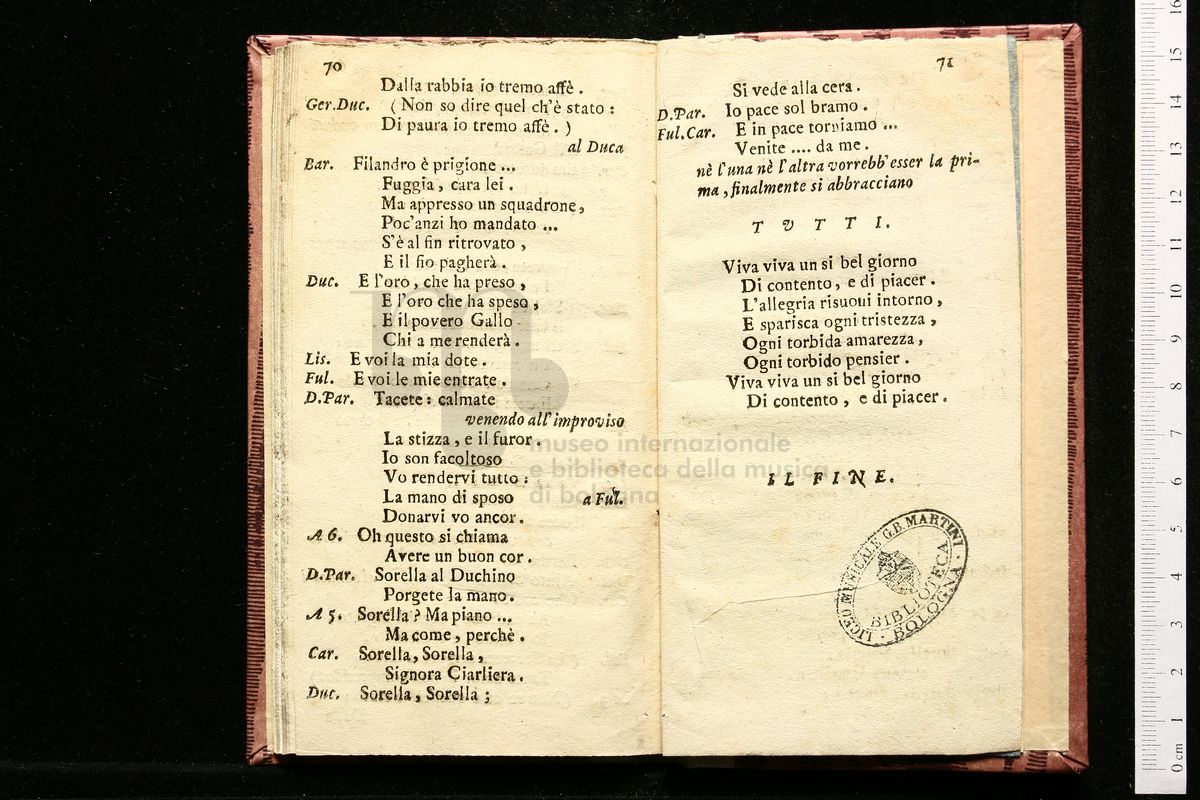 70
Dalla rabbia io tremo affè.
Ger.Duc. (Non so dire quel ch'è stato:
Di paura io tremo affè.)
al Duca
Bar. Filandro è prigione ...
Fuggia, cara lei.
Ma appresso un squadrone,
Poc'anzi ho mandato ...
S'è al fin ritrovato,
E il fio pagherà.
Duc. E l'oro, che ha preso,
E l'oro che ha speso,
E il povero Gallo
Chi a me renderà.
Lis. E voi la mia dote.
Ful. E voi le mie entrate.
D.Par. Tacete: calmate
venendo all'improviso
La stizza, e il furor.
Io son facoltoso
Vo rendervi tutto:
La mano di sposo a Ful.
Donarvi vo ancor.
A 6. Oh questo si chiama
Avere un buon cor.
D.Par. Sorella al Duchino
Porgete la mano.
A 5. Sorella? Ma piano ...
Ma come, perchè.
Car. Sorella, Sorella,
Signora Ciarliera.
Duc. Sorella, Sorella;
71
Si vede alla cera.
D.Par. Io pace sol bramo.
Ful.Car. E in pace torniamo ...
Venite .... da me.
nè l'una nè l'altra vorrebb'esser la pri-
ma, finalmente si abbracciano
TUTTI.
Viva viva un si bel giorno
Di contento, e di piacer.
L'allegria risuoni intorno,
E sparisca ogni tristezza,
Ogni torbida amarezza,
Ogni torbido pensier.
Viva viva un si bel giorno
Di contento, e di piacer.
IL FINE.
LICEO MUSICALE G.B. MARTINI
BIBLIOTECA
BOLOGNA
museo internazionale
e biblioteca della musica
di bologna
0 cm 1 2 3 4 5 6 7 8 9 10 11 12 13 14 15 16